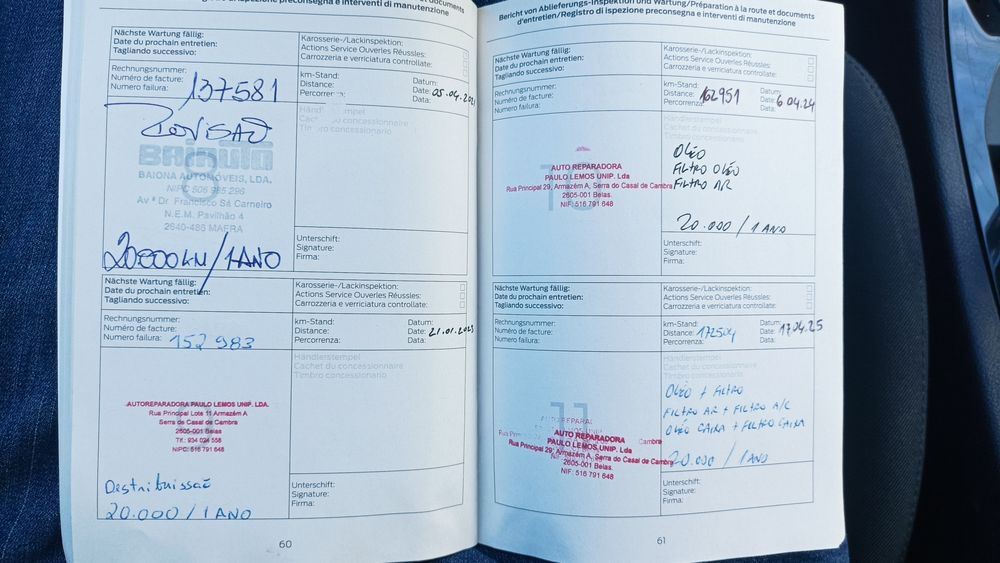 d'entretien/Registro di ispezione preconsegna e interventi di manutenzione
Nächste Wartung fällig:
Date du prochain entretien:
Tagliando successivo:
Karosserie-/Lackinspektion:
Actions Service Ouverles Réussles:
Carrozzeria e verriciatura controllate:
Rechnungsnummer:
Numéro de facture:
Numero failura:
137581
km-Stand:
Distance:
Percorrenza:
Datum:
Date: 05.04.202
Data:
Händlerstempel
Cachet du concessionnaire
Timbro concessionario
Revisão
8
BAIONA AUTOMÓVEIS, LDA.
Av ª Dr Francisco Sá Carneiro
N.E.M. Pavilhão 4
2640-486 MAFRA
20000KM/1ANO
Unterschrift:
Signature:
Firma:
Nächste Wartung fällig:
Date du prochain entretien:
Tagliando successivo:
Karosserie-/Lackinspektion:
Actions Service Ouverles Réussles:
Carrozzeria e verriciatura controllate:
Rechnungsnummer:
Numéro de facture:
Numero failura:
152983
km-Stand:
Distance:
Percorrenza:
Datum:
Date: 21.01.2023
Data:
Händlerstempel
Cachet du concessionnaire
Timbro concessionario
AUTOREPARADORA PAULO LEMOS UNIP. LDA.
Rua Principal Lote 11 Armazém A
Serra de Casal de Cambra
2605-001 Belas
Tf.: 934 024 558
NIPC: 516 791 648
Destribuissão
20.000 / 1 ANO
Unterschrift:
Signature:
Firma:
60
Bericht von Ablieferungs-Inspektion und Wartung/Préparation à la route et documents
d'entretien/Registro di ispezione preconsegna e interventi di manutenzione
Nächste Wartung fällig:
Date du prochain entretien:
Tagliando successivo:
Karosserie-/Lackinspektion:
Actions Service Ouverles Réussles:
Carrozzeria e verriciatura controllate:
Rechnungsnummer:
Numéro de facture:
Numero failura:
km-Stand:
Distance: 162951
Percorrenza:
Datum:
Date: 6.04.24
Data:
Händlerstempel
Cachet du concessionnaire
Timbro concessionario
10
AUTO REPARADORA
PAULO LEMOS UNIP. Lda
Rua Principal 29, Armazém A, Serra do Casal de Cambra
2605-001 Belas.
NIF: 516 791 648
OLÉO
FILTRO OLÉO
FILTRO AR
20.000 / 1 ANO
Unterschrift:
Signature:
Firma:
Nächste Wartung fällig:
Date du prochain entretien:
Tagliando successivo:
Karosserie-/Lackinspektion:
Actions Service Ouverles Réussles:
Carrozzeria e verriciatura controllate:
Rechnungsnummer:
Numéro de facture:
Numero failura:
km-Stand:
Distance: 172504
Percorrenza:
Datum:
Date: 17.04.25
Data:
Händlerstempel
Cachet du concessionnaire
Timbro concessionario
11
AUTO REPARADORA
PAULO LEMOS UNIP. Lda
Rua Principal 29, Armazém A, Serra do Casal de Cambra
2605-001 Belas.
NIF: 516 791 648
OLÉO + FILTRO
FILTRO AR + FILTRO A/C
OLÉO CAIXA + FILTRO CAIXA
20.000 / 1 ANO
Unterschrift:
Signature:
Firma:
61